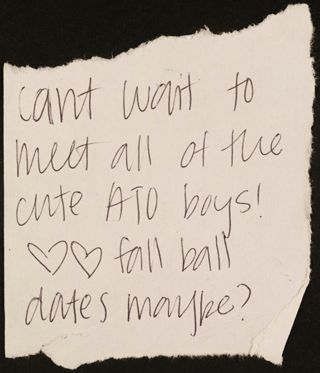 cant wait to
meet all of the
cute ATO boys!
♡♡ fall ball
dates maybe?